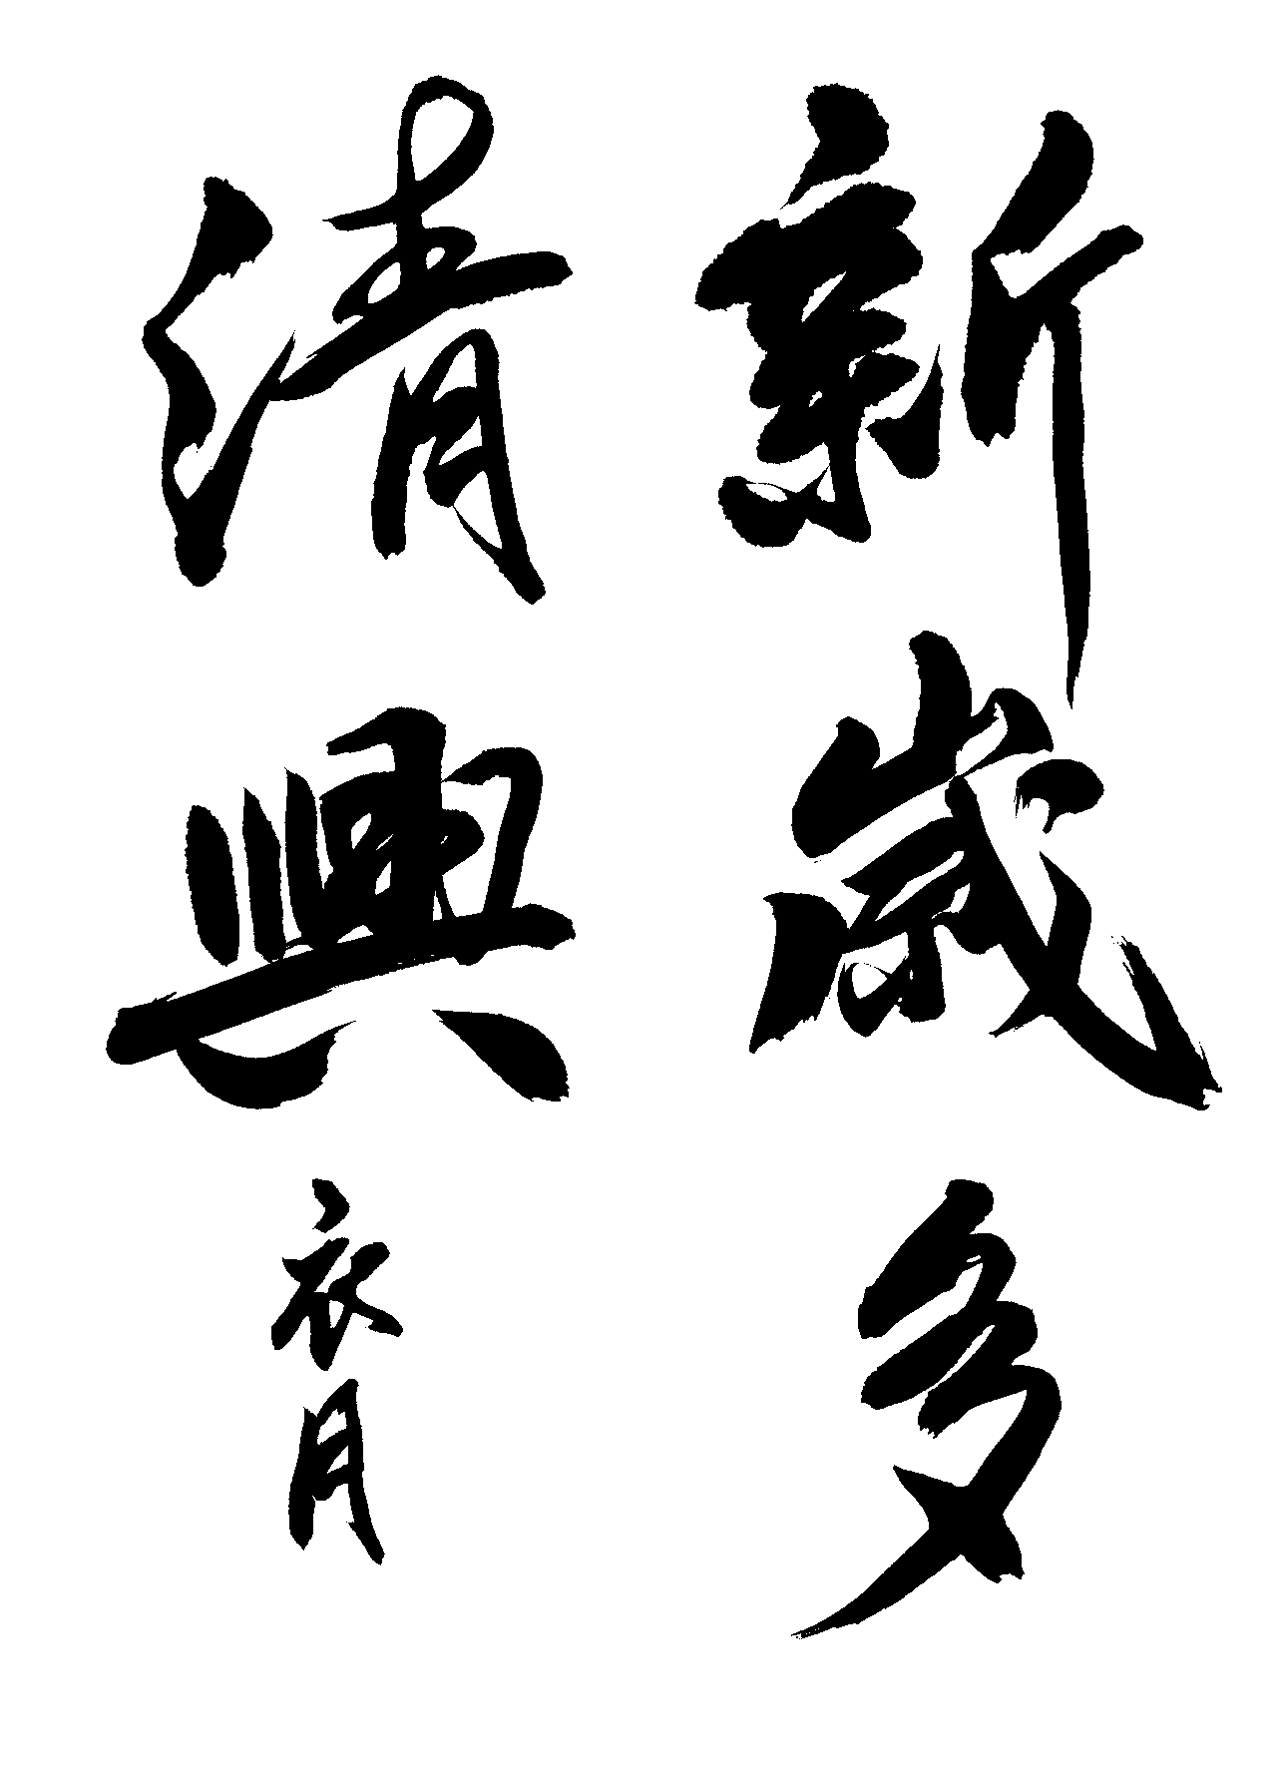 新歳多
清興
衣月